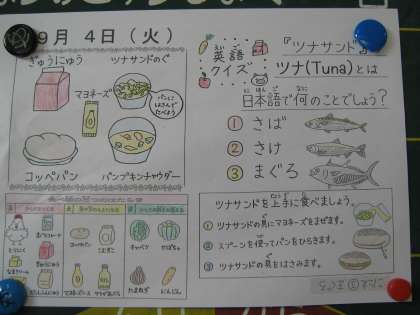 9月 4日（火）
ぎゅうにゅう
ツナサンドのぐ
マヨネーズ
パンに
はさんで
たべよう
コッペパン
パンプキンチャウダー
とりにく
コッペパン
キャベツ
かぼちゃ
たまねぎ
にんじん
英語
クイズ
『ツナサンド』
ツナ(Tuna)とは
日本語で何のことでしょう？
① さば
② さけ
③ まぐろ
ツナサンドを上手に食べましょう。
① ツナサンドの具にマヨネーズをまぜます。
② スプーンを使ってパンをひらきます。
③ ツナサンドの具をはさみます。